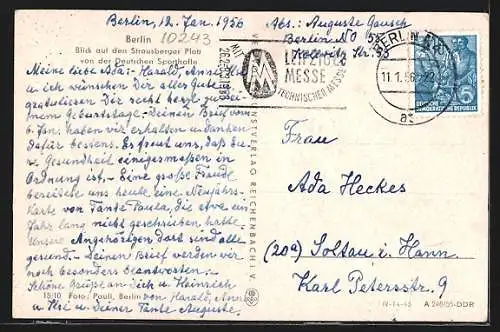 Berlin, 12. Jan. 1956
Abs: Auguste Gausch
Berlin NO 55
Berlin
10243
Blick auf den Strausberger Platz
von der Deutschen Sporthalle
MIT
LEIPZIGER
MESSE
TECHNISCHER MESSE
BERLIN
11.1.56
at
DEUTSCHE
DEMOKRATISCHE REPUBLIK
5
Meine liebe Ada: Harald, Anni
u. ich wünschen Dir alles Gute u.
gratulieren Dir recht herzl. zu Dei-
nem Geburtstage. Deinen Brief vom
6. Jan. haben wir erhalten u. danken
dafür bestens. Es freut uns, daß Du
Gesundheit einigermaßen in
Ordnung ist. - Eine große Freude
bereitete uns heute eine Neujahrs-
Karte von Tante Paula, die etwa ein
Jahr lang nicht geschrieben hatte.
Unsere Angehörigen dort sind alle
gesund. - Deinen Brief werden wir
noch besonders beantworten. -
Schöne Grüße an Dich u. Heinrich
von Harald, Anni
u. Deiner Tante Auguste.
15/10 Foto: Pauli, Berlin
KUNSTVERLAG REICHENBACH I. V.
Frau
Ada Heckes
(20a) Soltau i. Hann
Karl Petersstr. 9
IV-14-45 A 246/55-DDR